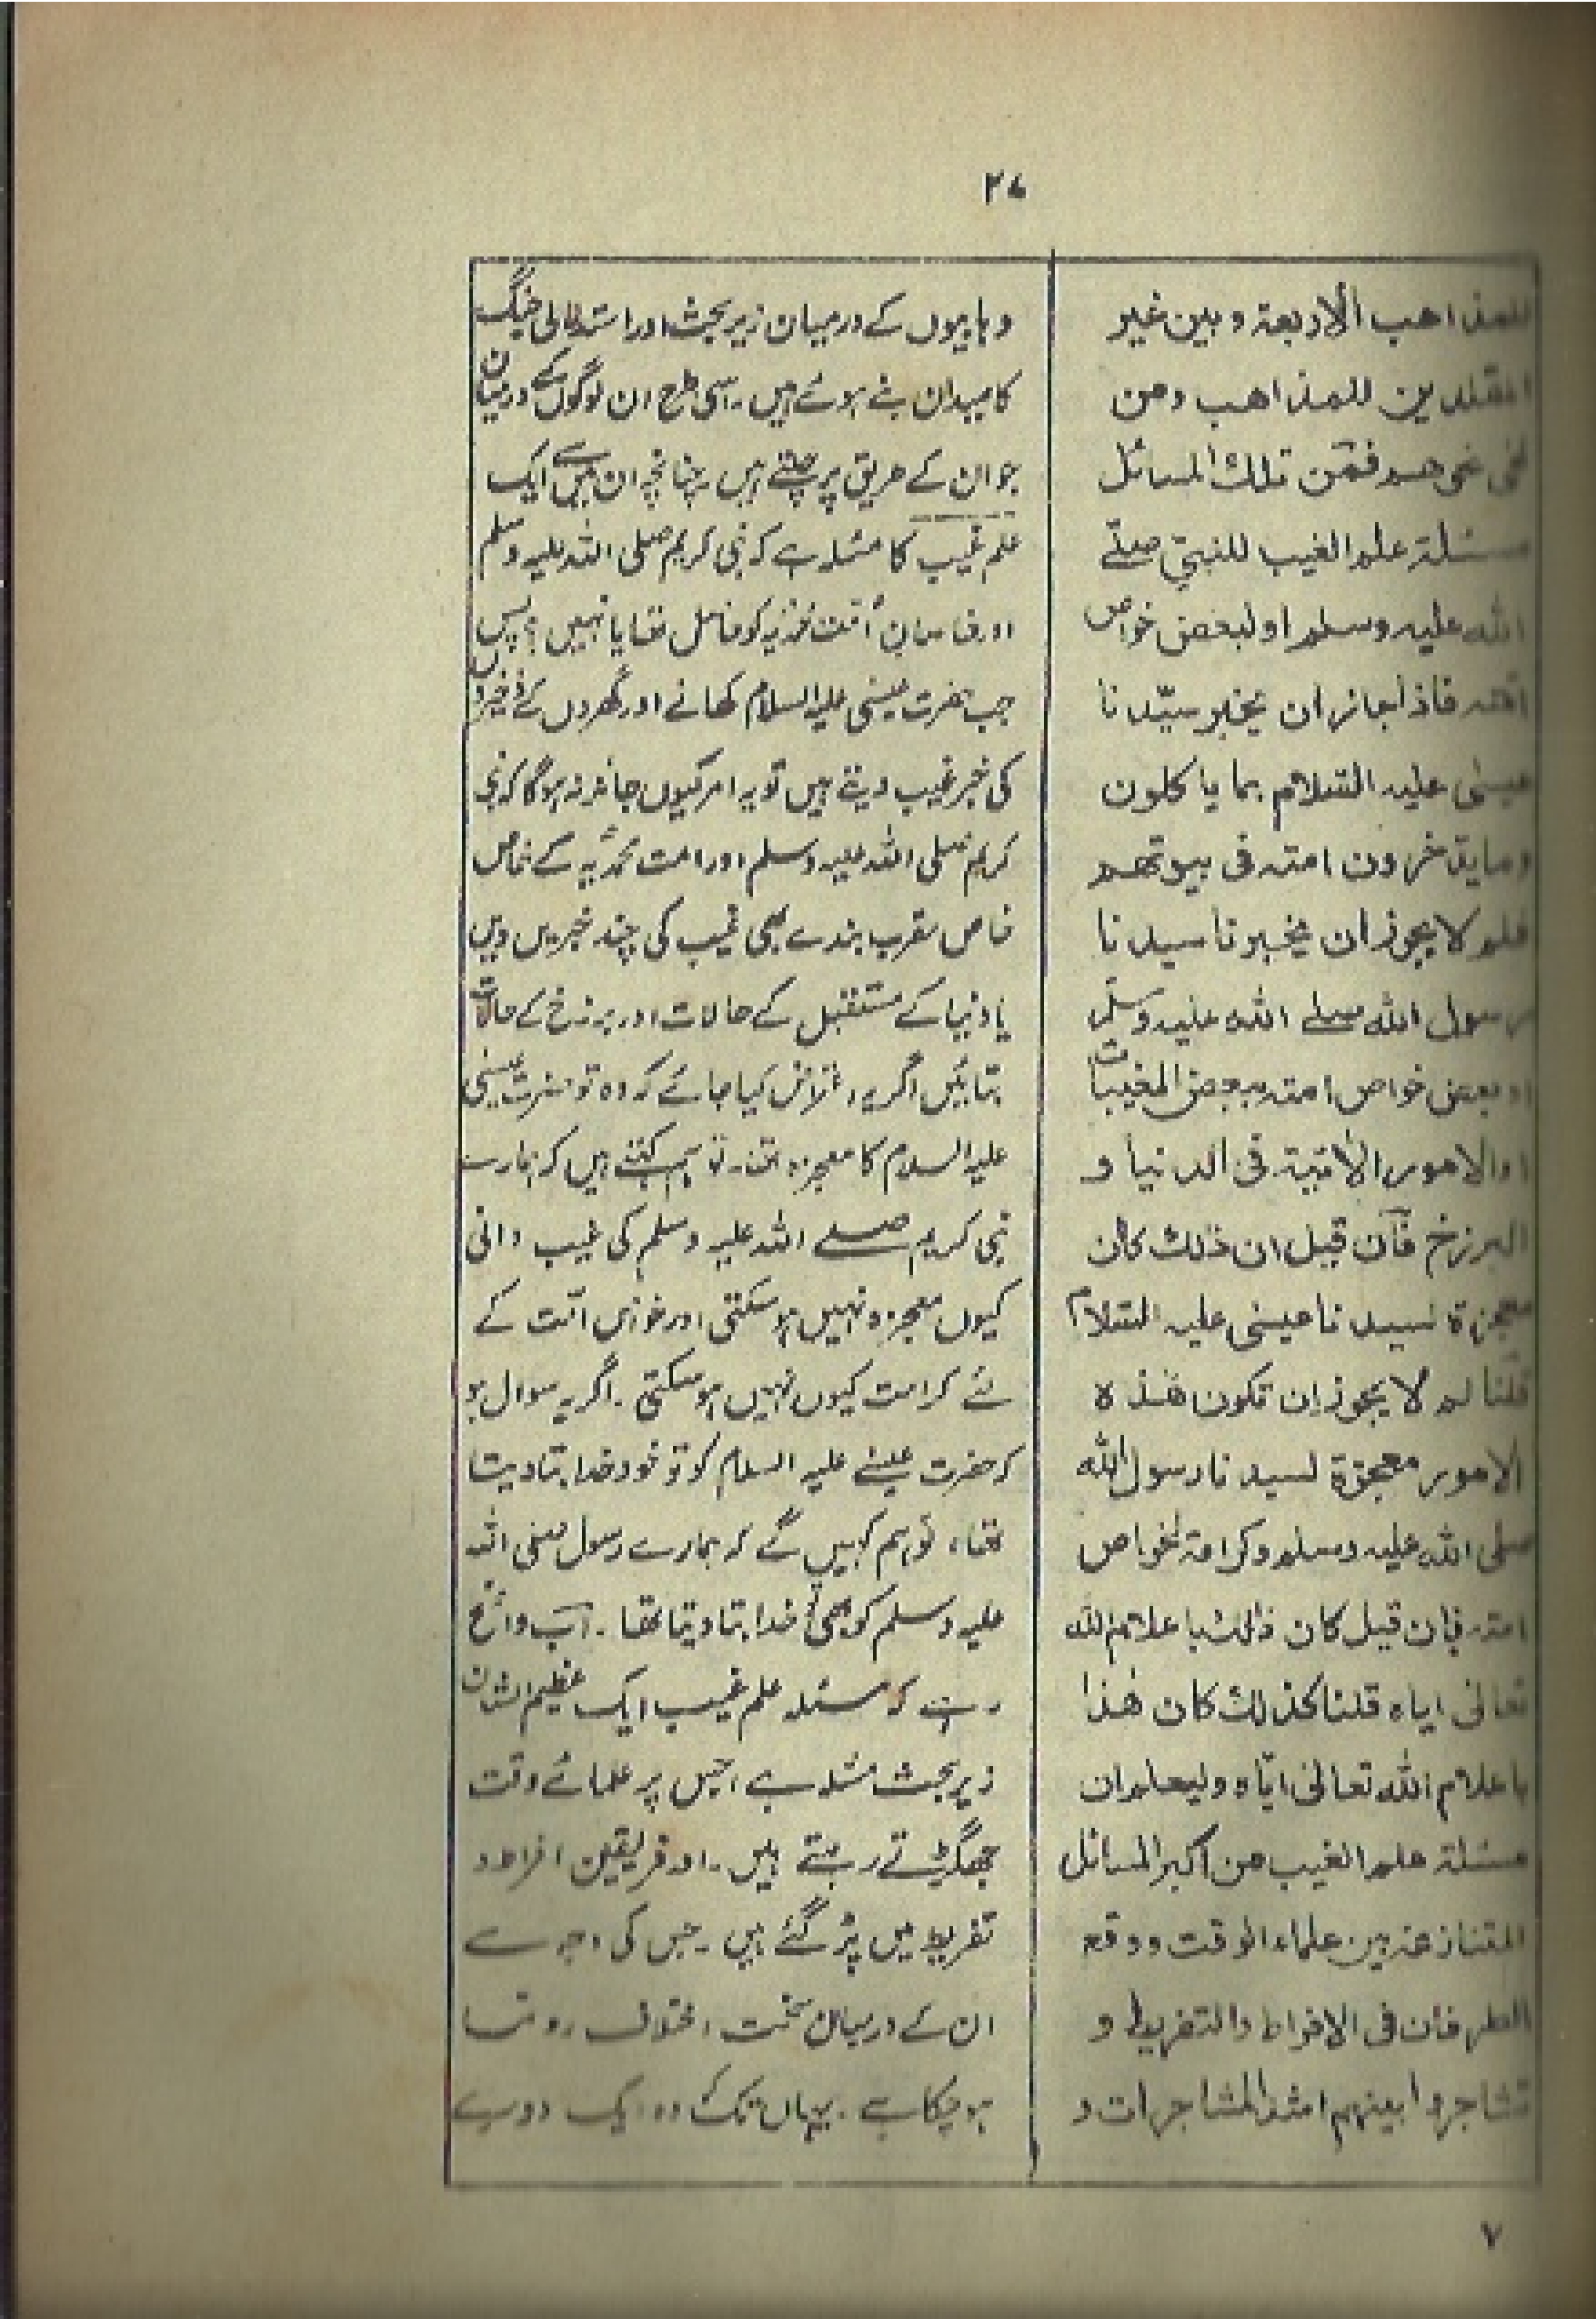 ۲۷
للمذاهب الاربعة وبين غير
المقلدين للمذاهب ومن
نحى نحوهم فمن تلك المسائل
مسئلة علم الغيب للنبي صلے
الله عليه وسلم او لبعض خواص
امته فاذا جاز ان يخبر سيّدنا
عيسٰى عليه السّلام بما ياكلون
وما يدّخرون امته فى بيوتهم
فلم لا يجوز ان يخبرنا سيدنا
رسول الله صلے الله عليه وسلّم
او بعض خواص امته ببعض المغيبات
او الامور الآتية فى الدنيا و
البرزخ فان قيل ان ذلك كان
معجزة لسيدنا عيسٰى عليه السّلام
قلنا لم لا يجوز ان تكون هٰذه
الامور معجزة لسيدنا رسول الله
صلى الله عليه وسلم وكرامة لخواص
امته فان قيل كان ذالك باعلام الله
تعالىٰ اياه قلنا كذالك كان هٰذا
باعلام الله تعالىٰ ايّاه وليعلم ان
مسئلة علم الغيب من اكبر المسائل
المتنازعة بين علماء الوقت ووقع
الطرفان فى الافراط والتفريط و
تشاجروا بينهم اشد المشاجرات و
وہابیوں کے درمیان زیر بحث اور استدلالی جنگ
کا میدان بنے ہوئے ہیں۔ اسی طرح ان لوگوں کے درمیان
جو ان کے طریق پر چلتے ہیں۔ چنانچہ ان میں سے ایک
علم غیب کا مسئلہ ہے کہ نبی کریم صلی اللہ علیہ وسلم
اور خاصان اُمت محمدیہ کو حاصل تھا یا نہیں؟ پس
جب حضرت عیسیٰ علیہ السلام کھانے اور گھروں کے ذخیروں
کی خبر غیب دیتے ہیں تو یہ امر کیوں جائز نہ ہوگا کہ نبی
کریم صلی اللہ علیہ وسلم اور امت محمدیہ کے خاص
خاص مقرب بندے بھی غیب کی چند خبریں دیں
یا دنیا کے مستقبل کے حالات اور برزخ کے حالات
بتائیں اگر یہ اعتراض کیا جائے کہ وہ تو حضرت عیسیٰ
علیہ السلام کا معجزہ تھا۔ تو ہم کہتے ہیں کہ ہمارے
نبی کریم صلے اللہ علیہ وسلم کی غیب دانی
کیوں معجزہ نہیں ہو سکتی اور خواص امّت کے
لئے کرامت کیوں نہیں ہو سکتی۔ اگر یہ سوال ہو
کہ حضرت عیسےٰ علیہ السلام کو تو خود خدا بتا دیتا
تھا، تو ہم کہیں گے کہ ہمارے رسول صلی اللہ
علیہ وسلم کو بھی تو خدا بتا دیتا تھا۔ اب واضح
رہے کہ مسئلہ علم غیب ایک عظیم الشان
زیر بحث مسئلہ ہے، جس پر علمائے وقت
جھگڑتے رہتے ہیں۔ اور فریقین افراط و
تفریط میں پڑ گئے ہیں۔ جس کی وجہ سے
ان کے درمیان سخت اختلاف رونما
ہو چکا ہے۔ یہاں تک کہ وہ ایک دوسرے
۷